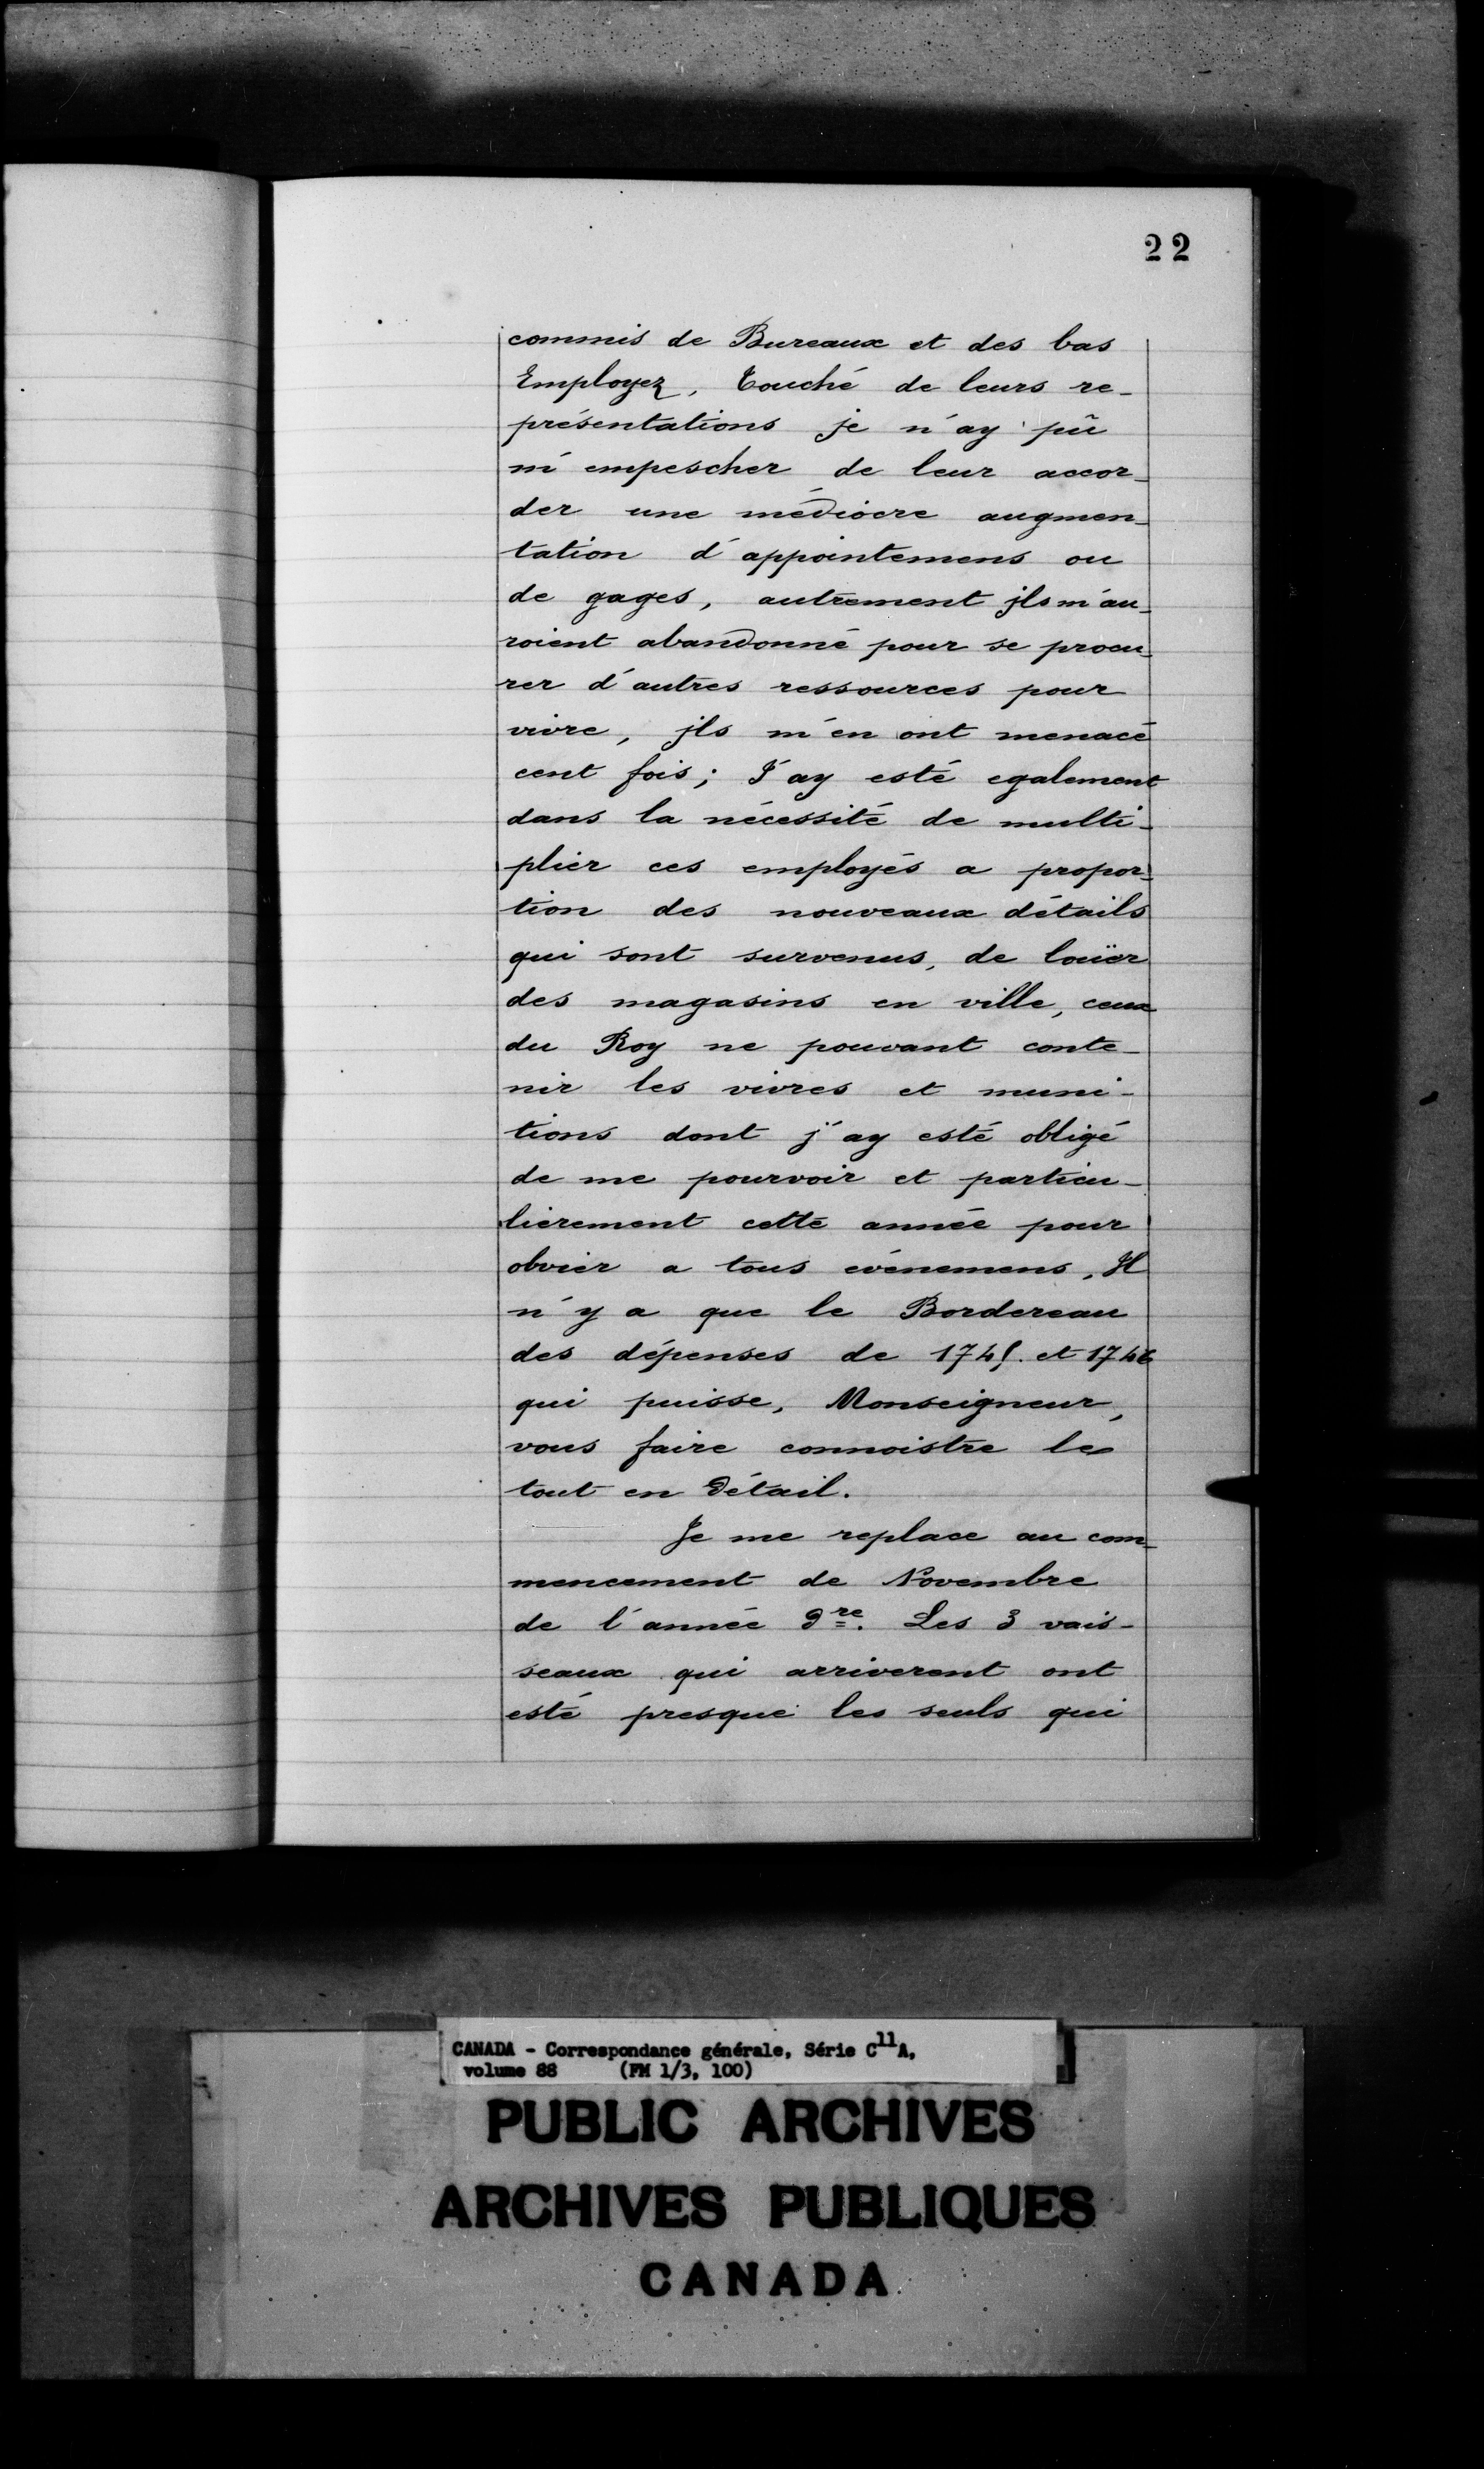 22
commis de Bureaux et des bas
Employez, Touché de leurs re-
présentations je n'ay pû
m'empescher de leur accor-
der une médiocre augmen-
tation d'appointemens ou
de gages, autrement jls m'au-
roient abandonné pour se procu-
rer d'autres ressources pour
vivre, jls m'en ont menacé
cent fois; J'ay esté egalement
dans la nécessité de multi-
plier ces employés a propor-
tion des nouveaux détails
qui sont survenus, de louër
des magasins en ville, ceux
du Roy ne pouvant conte-
nir les vivres et muni-
tions dont j'ay esté obligé
de me pourvoir et particu-
lierement cette année pour
obvier a tous evénemens, Il
n'y a que le Bordereau
des dépenses de 1745. et 1746
qui puisse, Monseigneur,
vous faire connoistre le
tout en détail.
Je me replace au com-
mencement de Novembre
de l'année dre. Les 3 vais-
seaux qui arriverent ont
esté presque les seuls qui
CANADA - Correspondance générale, Série C11A,
volume 88 (FM 1/3, 100)
PUBLIC ARCHIVES
ARCHIVES PUBLIQUES
CANADA